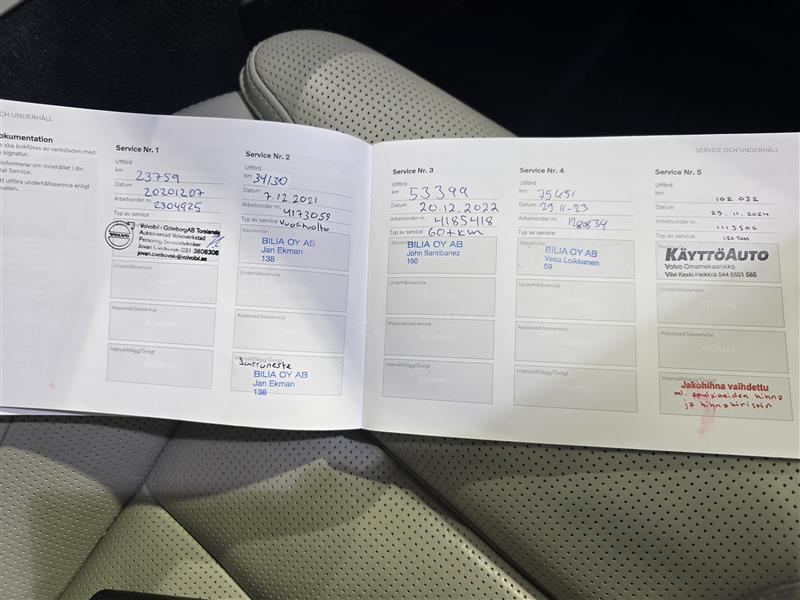 OCH UNDERHÅLL
okumentation
e ska bokföras av verkstaden med
signatur.
informerar om innehållet i din
nal Service.
tt utföra underhållsservice enligt
vallen.
Service Nr. 1
Utförd
km 23759
Datum 20201207
Arbetsorder nr. 2304925
Typ av service
VOLVO
Volvobil i Göteborg AB Torslanda
Auktoriserad Volvoverkstad
Personlig Servicetekniker
jovan.cvetkovski@volvobil.se
Underhållsservice
STÄMPEL
Anpassad basservice
STÄMPEL
Intervalltillägg/Övrigt
STÄMPEL
Service Nr. 2
Utförd
km 34130
Datum 7.12.2021
Arbetsorder nr. 4173059
Typ av service Vuosihuolto
Basservice
BILIA OY AB
Jan Ekman
138
Underhållsservice
STÄMPEL
Anpassad basservice
STÄMPEL
Intervalltillägg/Övrigt
Jarruneste
BILIA OY AB
Jan Ekman
138
Service Nr. 3
Utförd
km 53399
Datum 20.12.2022
Arbetsorder nr. 4185418
Typ av service 60tkm
BILIA OY AB
John Santibanez
150
Underhållsservice
STÄMPEL
Anpassad basservice
STÄMPEL
Intervalltillägg/Övrigt
STÄMPEL
Service Nr. 4
Utförd
km 75451
Datum 29.11-23
Arbetsorder nr.
Typ av service
Basservice
BILIA OY AB
Vesa Loikkanen
59
Underhållsservice
STÄMPEL
Anpassad basservice
STÄMPEL
Intervalltillägg/Övrigt
STÄMPEL
SERVICE OCH UNDERHÅLL
Service Nr. 5
Utförd
km 102 032
Datum 29.11.2024
Arbetsorder nr. 1113506
Typ av service 120 Tkm
KÄYTTÖAUTO
Volvo Omamekaanikko
Viivi Keski-Heikkilä 044 5501 585
Underhållsservice
STÄMPEL
Anpassad basservice
STÄMPEL
Intervalltillägg/Övrigt
Jakohihna vaihdettu
ml. apulaiteiden hihna
ja hihnakiristin